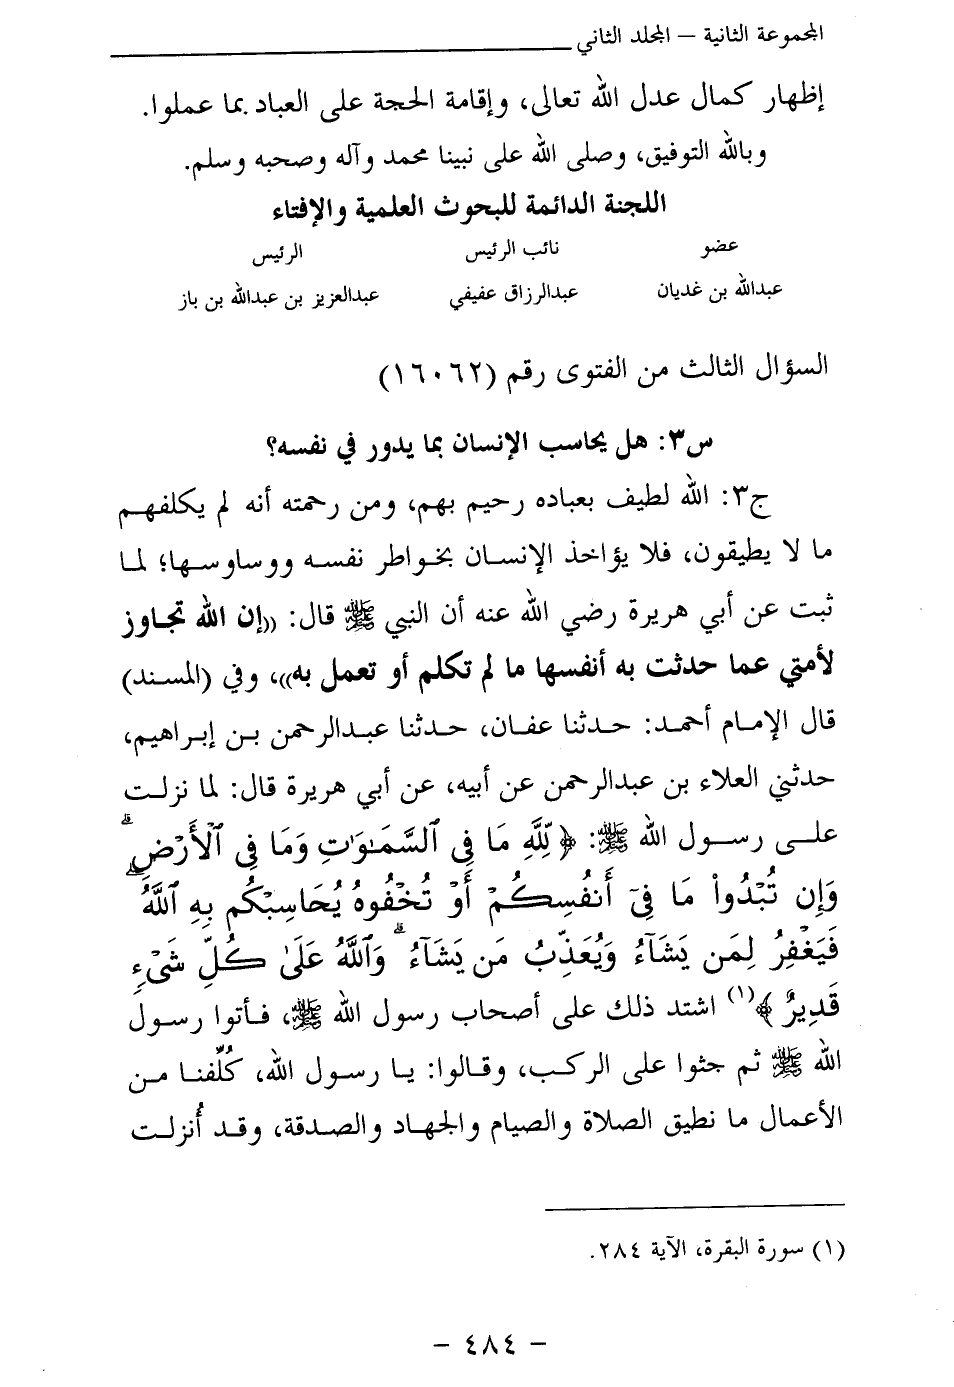 المجموعة الثانية – المجلد الثاني
إظهار كمال عدل الله تعالى، وإقامة الحجة على العباد بما عملوا.
وبالله التوفيق، وصلى الله على نبينا محمد وآله وصحبه وسلم.
اللجنة الدائمة للبحوث العلمية والإفتاء
عضو نائب الرئيس الرئيس
عبدالله بن غديان عبدالرزاق عفيفي عبدالعزيز بن عبدالله بن باز
السؤال الثالث من الفتوى رقم (١٦٠٦٢)
س٣: هل يحاسب الإنسان بما يدور في نفسه؟
ج٣: الله لطيف بعباده رحيم بهم، ومن رحمته أنه لم يكلفهم
ما لا يطيقون، فلا يؤاخذ الإنسان بخواطر نفسه ووساوسها؛ لما
ثبت عن أبي هريرة رضي الله عنه أن النبي ﷺ قال: ((إن الله تجاوز
لأمتي عما حدثت به أنفسها ما لم تكلم أو تعمل به))، وفي (المسند)
قال الإمام أحمد: حدثنا عفان، حدثنا عبدالرحمن بن إبراهيم،
حدثني العلاء بن عبدالرحمن عن أبيه، عن أبي هريرة قال: لما نزلت
على رسول الله ﷺ: ﴿لِّلَّهِ مَا فِي ٱلسَّمَٰوَٰتِ وَمَا فِي ٱلۡأَرۡضِۗ
وَإِن تُبۡدُواْ مَا فِيٓ أَنفُسِكُمۡ أَوۡ تُخۡفُوهُ يُحَاسِبۡكُم بِهِ ٱللَّهُۖ
فَيَغۡفِرُ لِمَن يَشَآءُ وَيُعَذِّبُ مَن يَشَآءُۗ وَٱللَّهُ عَلَىٰ كُلِّ شَيۡءٖ
قَدِيرٌ﴾(١) اشتد ذلك على أصحاب رسول الله ﷺ، فأتوا رسول
الله ﷺ ثم جثوا على الركب، وقالوا: يا رسول الله، كُلِّفنا من
الأعمال ما نطيق الصلاة والصيام والجهاد والصدقة، وقد أُنزلت
(١) سورة البقرة، الآية ٢٨٤.
– ٤٨٤ –